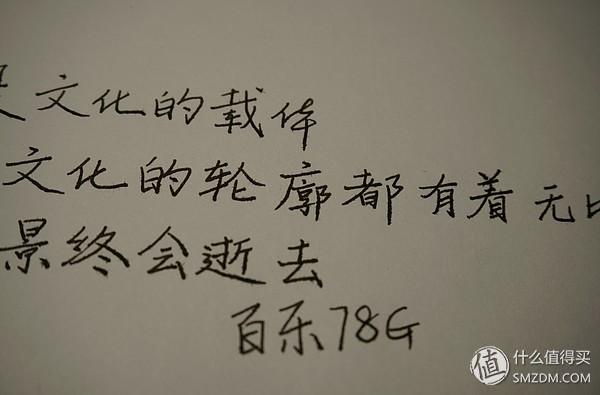 文化的载体
文化的轮廓都有着无
景终会逝去
百乐78G
值 什么值得买
SMZDM.COM